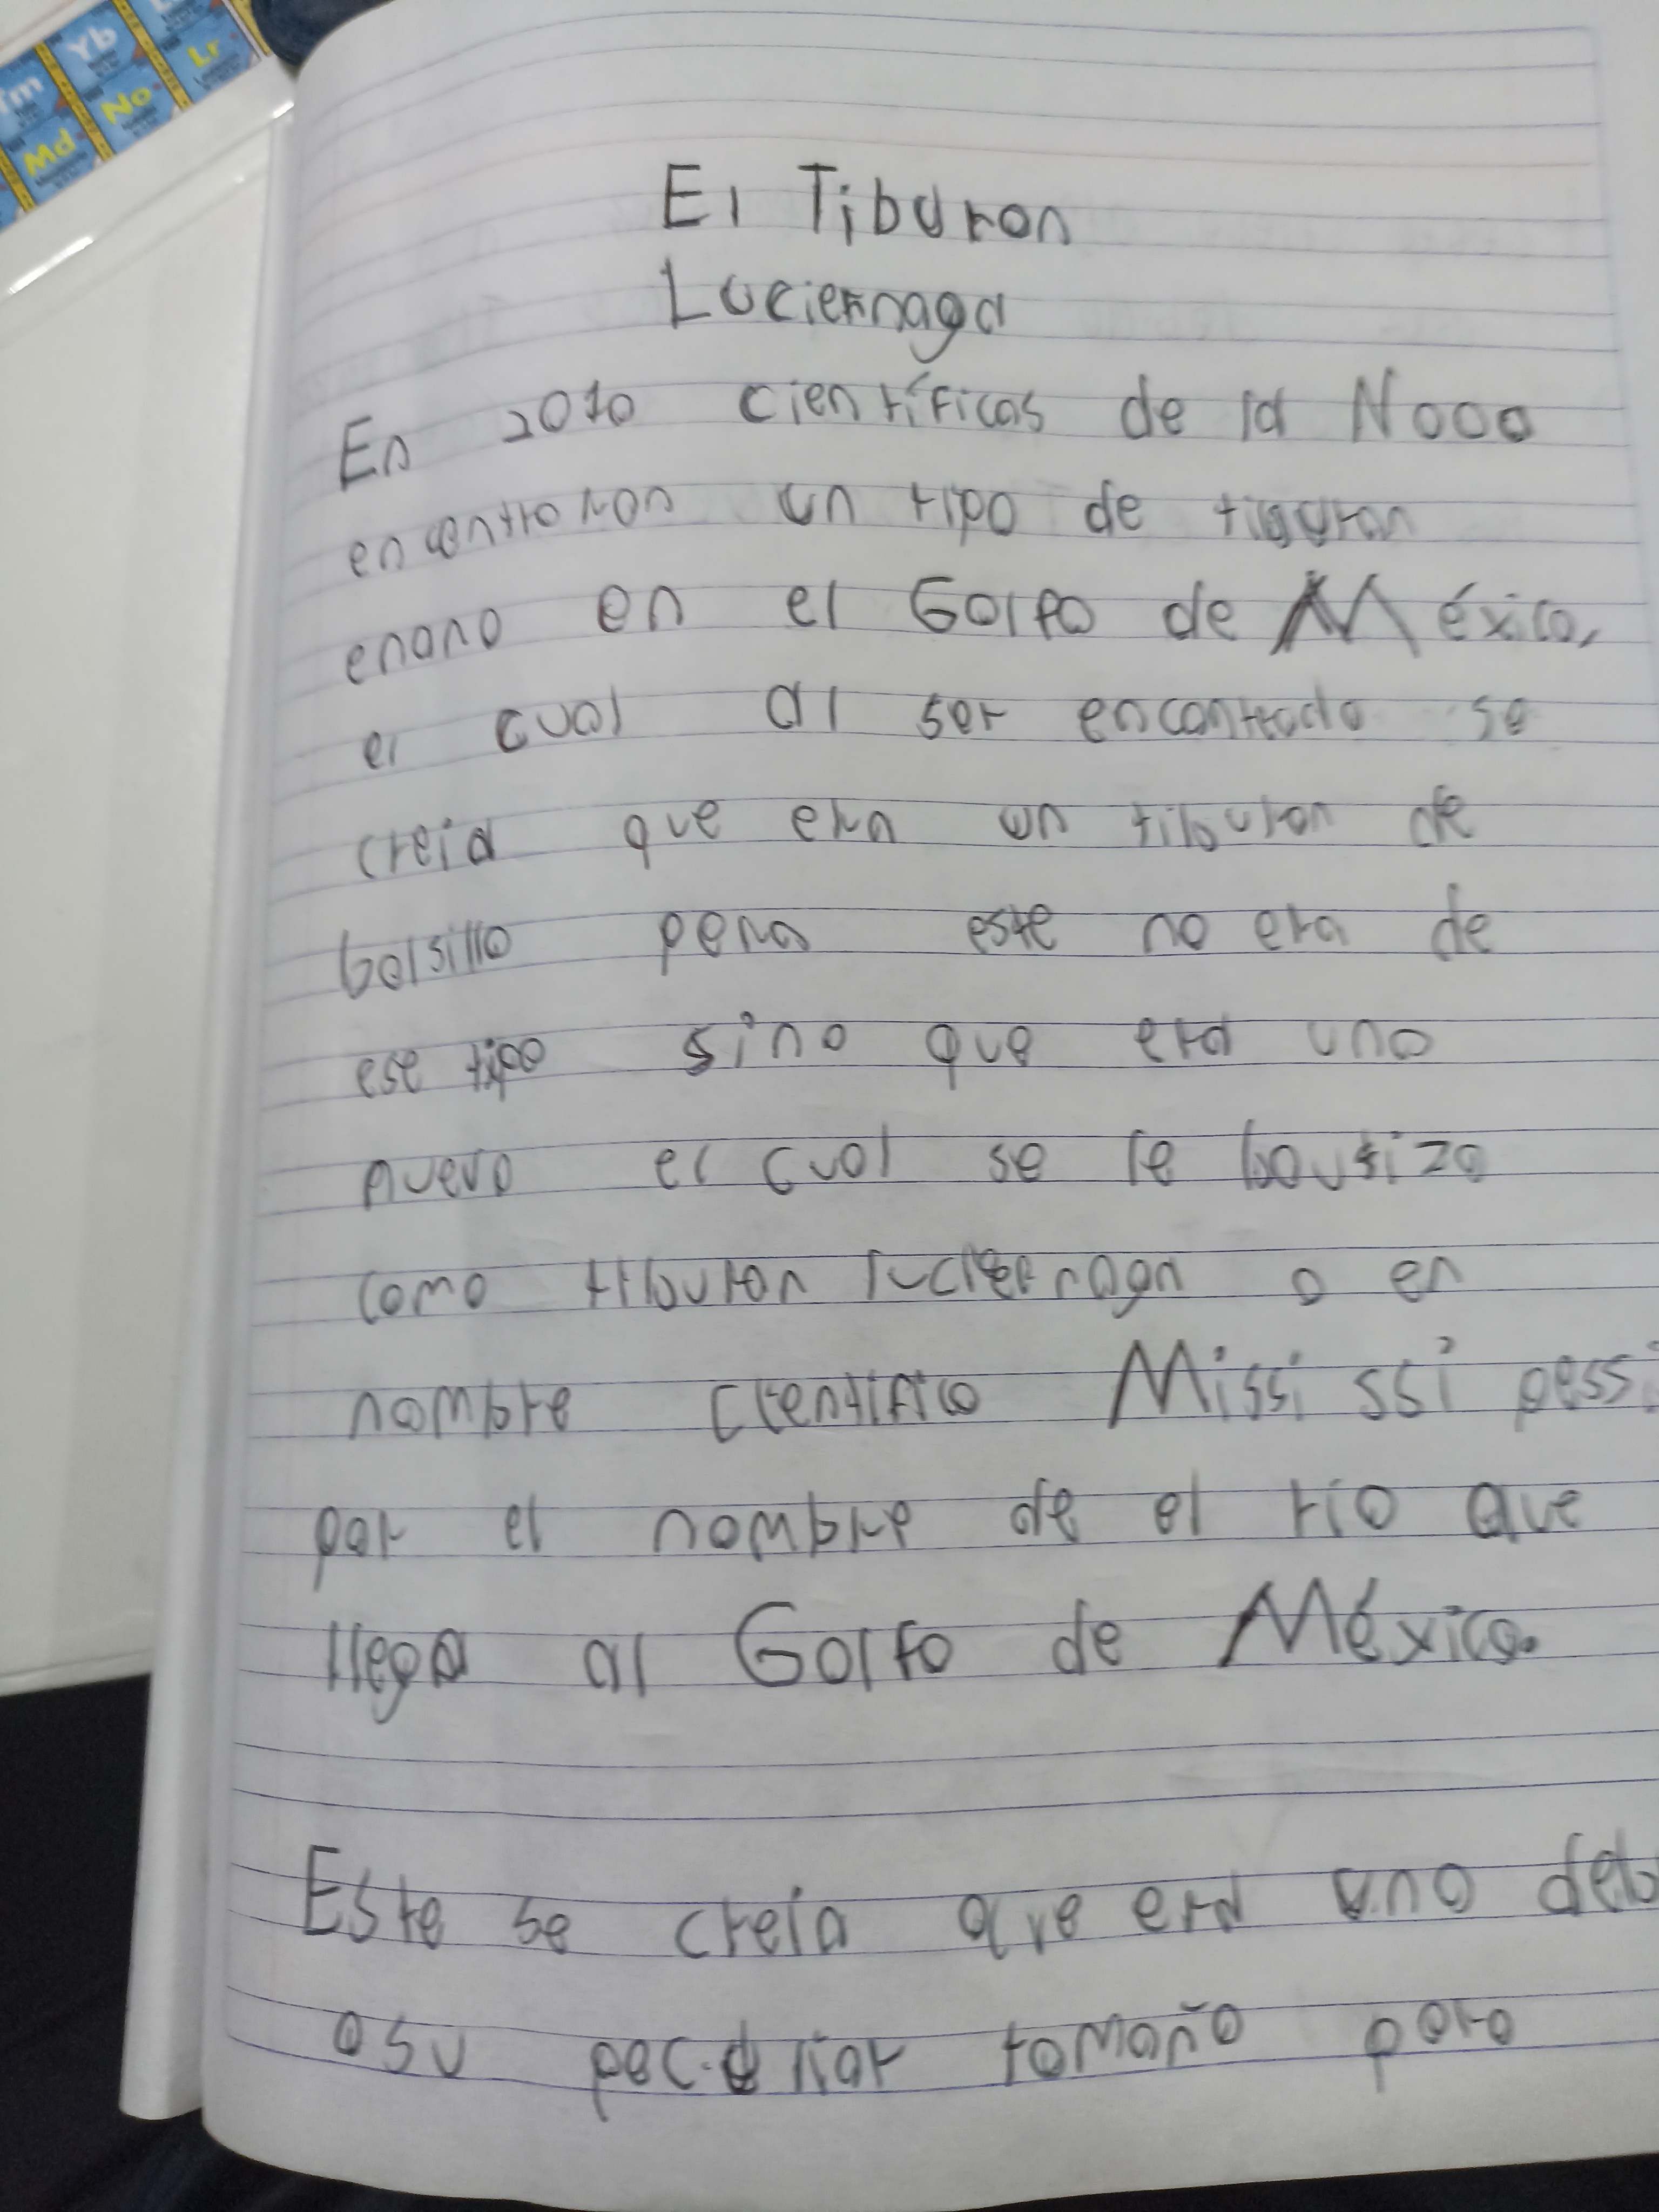 Tm Yb L
Md No Lr
El Tiburon
Luciernaga
En 2010 científicos de la Nooo
encontraron un tipo de tiburon
enano en el Golfo de México,
el cual al ser encontrado se
creia que era un tiburon de
bolsillo pero este no era de
ese tipo sino que era uno
nuevo el cual se le boutizo
como tiburon luciernaga o en
nombre cientifico Missi ssi pessi
por el nombre de el rio que
llega al Golfo de México.
Este se creia que era uno debi
o su peculiar tamaño pero